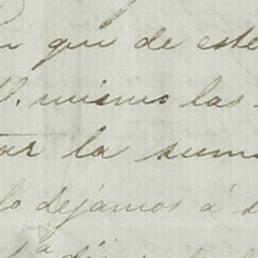 que de este
mismo las
la suma
lo dejamos á